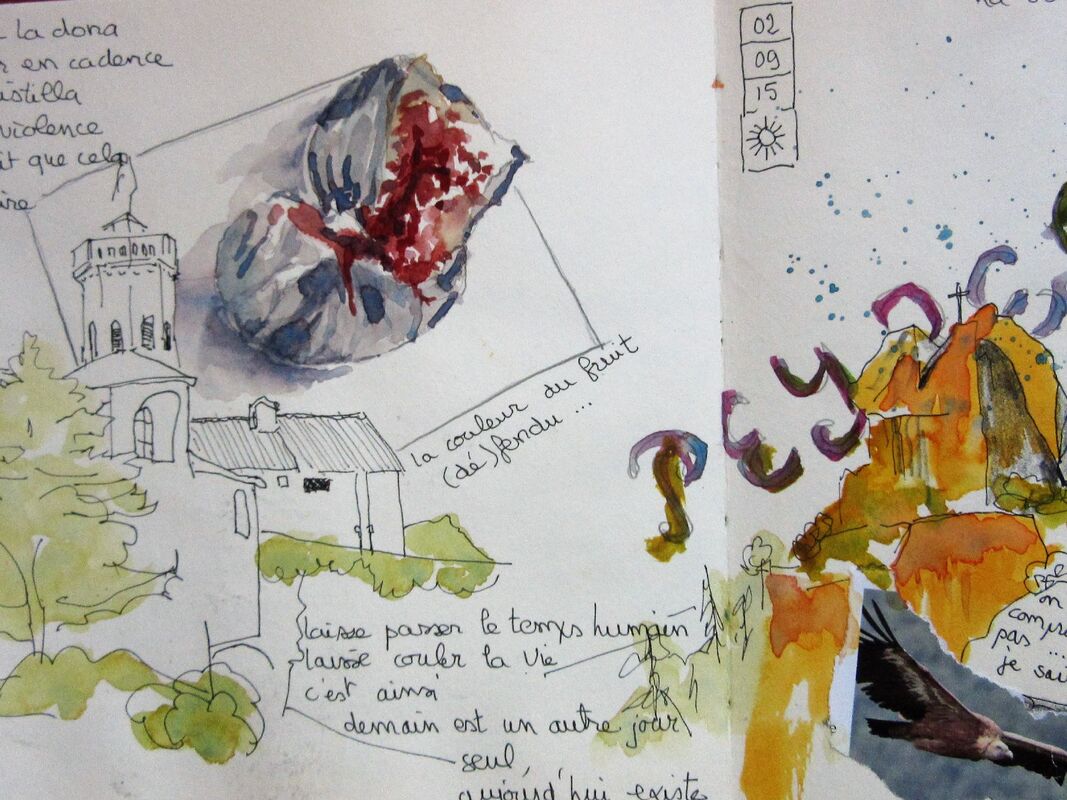 la dona
en cadence
istilla
violence
it que cela
ire
la couleur du fruit
(dé)fendu ...
laisse passer le temps humain
laisse couler la Vie
c'est ainsi
demain est un autre jour
seul,
aujourd'hui existe
02
09
15
Pey
on
compre
pas ...
je sai